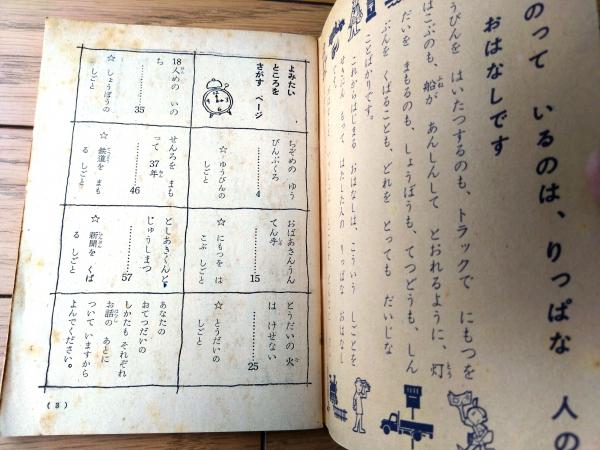 のって いるのは、りっぱな 人の
おはなしです
うびんを はいたつするのも、トラックで にもつを
はこぶのも、船が あんしんして とおれるように、灯
だいを まもるのも、しょうぼうも、てつどうも、しん
ぶんを くばることも、どれを とっても だいじな
ことばかりです。
これからはじまる おはなしは、こういう しごとを
せきにん もって はたした人の りっぱな おはなし
よみたい
ところを
さがす ページ
ちぞめの ゆう
びんぶくろ
…………4
☆ ゆうびんの
しごと
おばあさんうん
てん手
…………15
☆ にもつを は
こぶ しごと
とうだいの 火
は けせない
…………25
☆ とうだいの
しごと
18人めの いの
ち
…………35
☆ しょうぼうの
しごと
せんろを まも
って 37年
…………46
☆ 鉄道を まも
る しごと
としあきくんと
じゅうしまつ
…………57
☆ 新聞を くば
る しごと
あなたの
おてつだいの
しかたも それぞれ
お話の あとに
ついて いますから
よんでください。
(3)